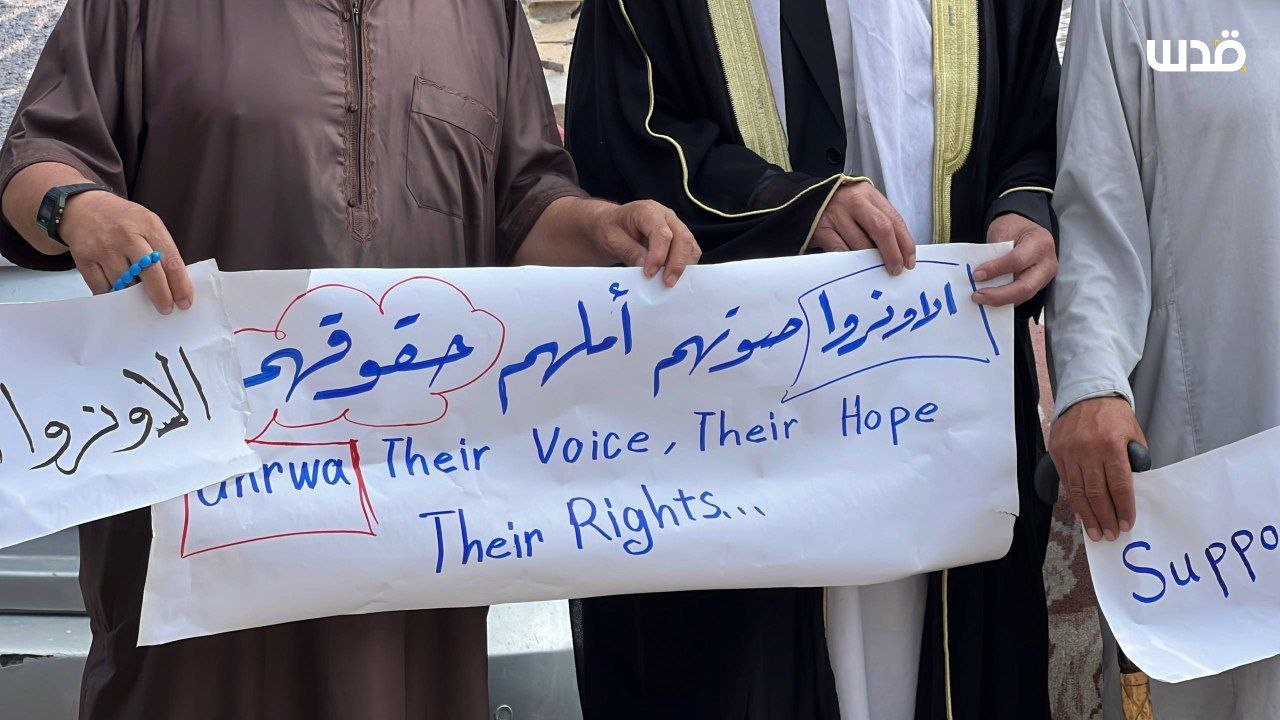 قدس
الاونروا صوتهم أملهم حقوقهم
unrwa Their Voice, Their Hope
Their Rights...
الاونروا
Suppo